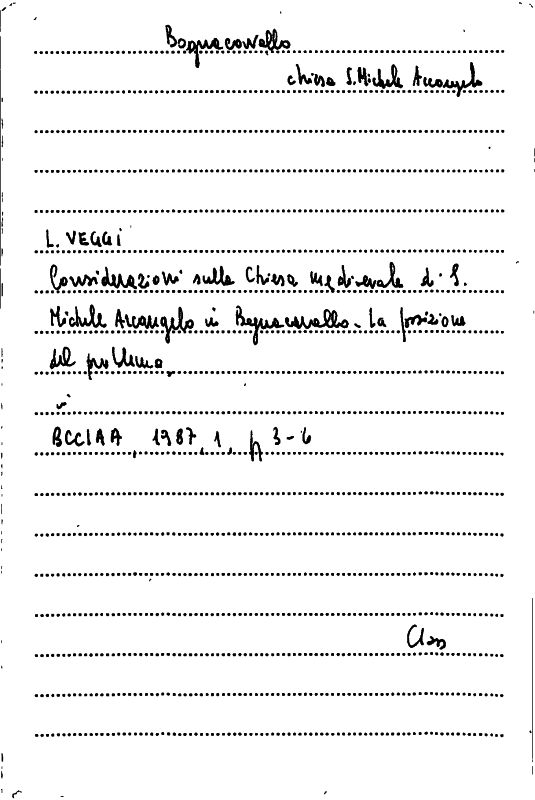 Bagnacavallo
chiesa S. Michele Arcangelo
L. VEGGI
Considerazioni sulla Chiesa medievale di S.
Michele Arcangelo in Bagnacavallo - La posizione
del problema,
in
BCCIAA, 1987, 1, p 3-6
Class